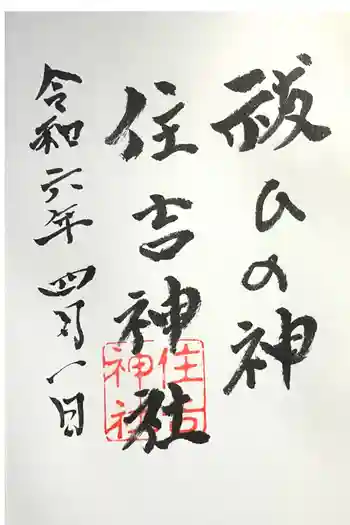 祓ひの神
住吉神社
住吉神社
令和六年四月一日